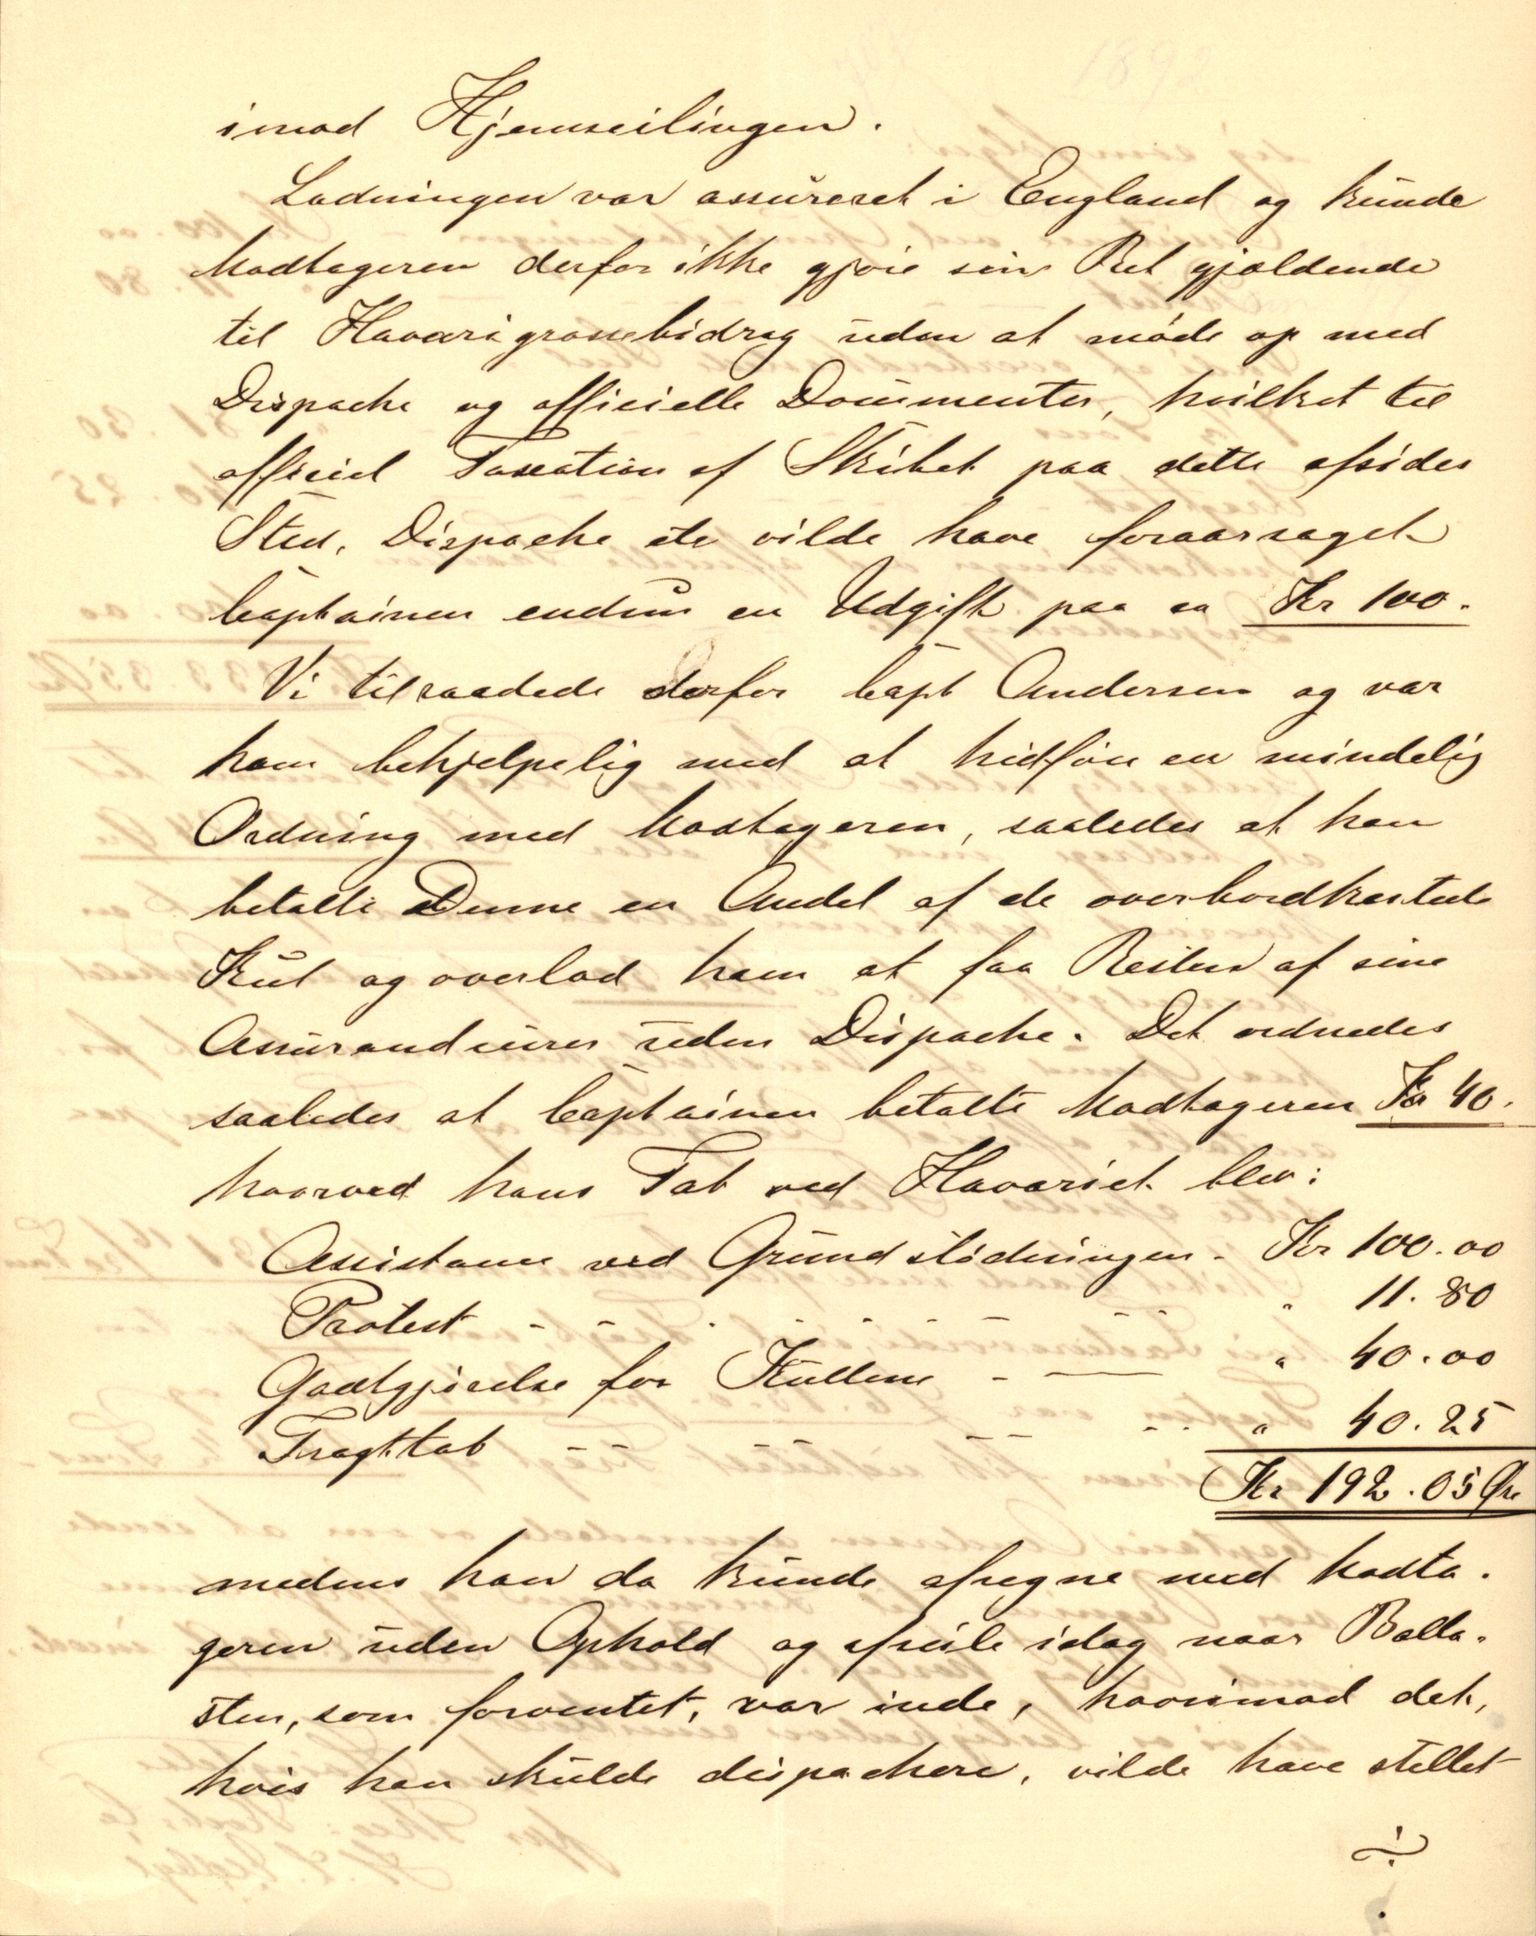 imod Hjemseilingen.
Ladningen var assureret i England og kunde
Modtageren derfor ikke gjøre sin Ret gjældende
til Havarigrossebidrag uden at møde op med
Dispache og officielle Documenter, hvilket til
officiel Taxation af Skibet paa dette afsides
Sted, Dispache etc vilde have foraarsaget
Captainen endnu en Udgift paa ca Kr 100.
Vi tilraadede derfor Capt Andersen og var
ham behjelpelig med at hidføre en mindelig
Ordning med Modtageren, saaledes at han
betalte Denne en Andel af de overbordkastede
Kul og overlod ham at faa Resten af sine
Assurandeurer uden Dispache. Det ordnedes
saaledes at Captainen betalte Modtageren Kr 40.
hvorved hans Tab ved Havariet blev:
Assistance ved Grundstødningen - Kr 100.00
Protest - - - - - - - " 11.80
Godtgjørelse for Kullene - — " 40.00
Fragttab - - - - - " 40.25
Kr 192.05 Øre
medens han da kunde afregne med Modta-
geren uden Ophold og afseile idag naar Balla-
sten, som forventet, var inde, hvorimod det,
hvis han skulde dispachere, vilde have stillet